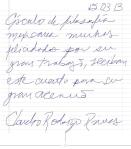 25 03 13
Círculo de filosofía
mexicana muchas
felicidades por su
gran trabajo, reciban
este cuarto para su
gran acervo
Claudio Rodrigo Ramos